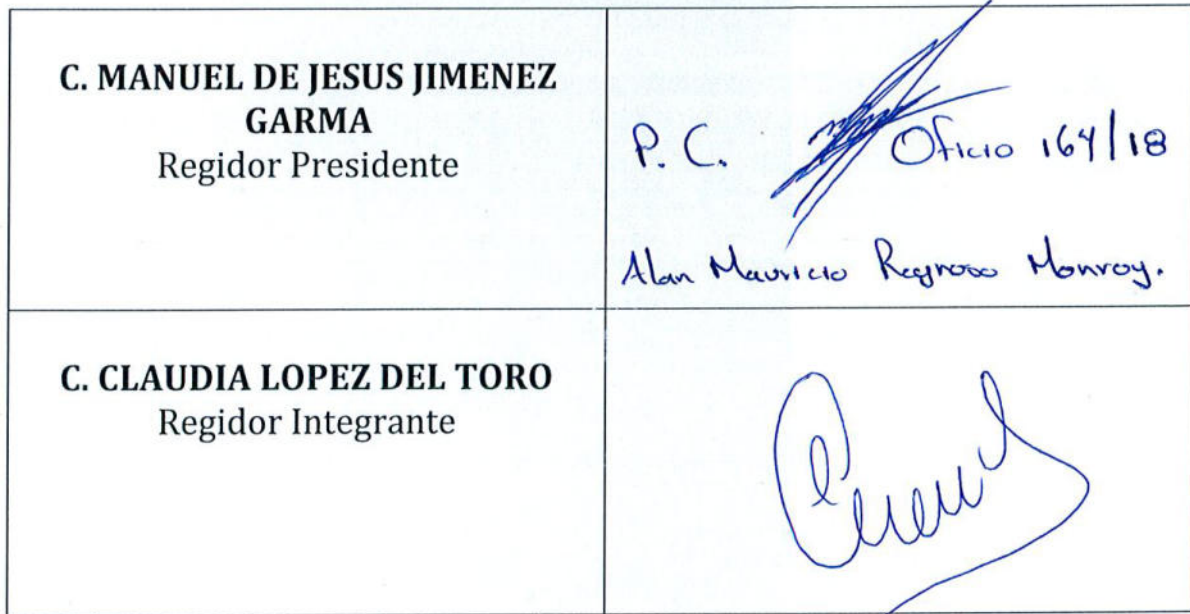 C. MANUEL DE JESUS JIMENEZ
GARMA
Regidor Presidente
P. C. Oficio 164/18
Alan Mauricio Monroy.
C. CLAUDIA LOPEZ DEL TORO
Regidor Integrante